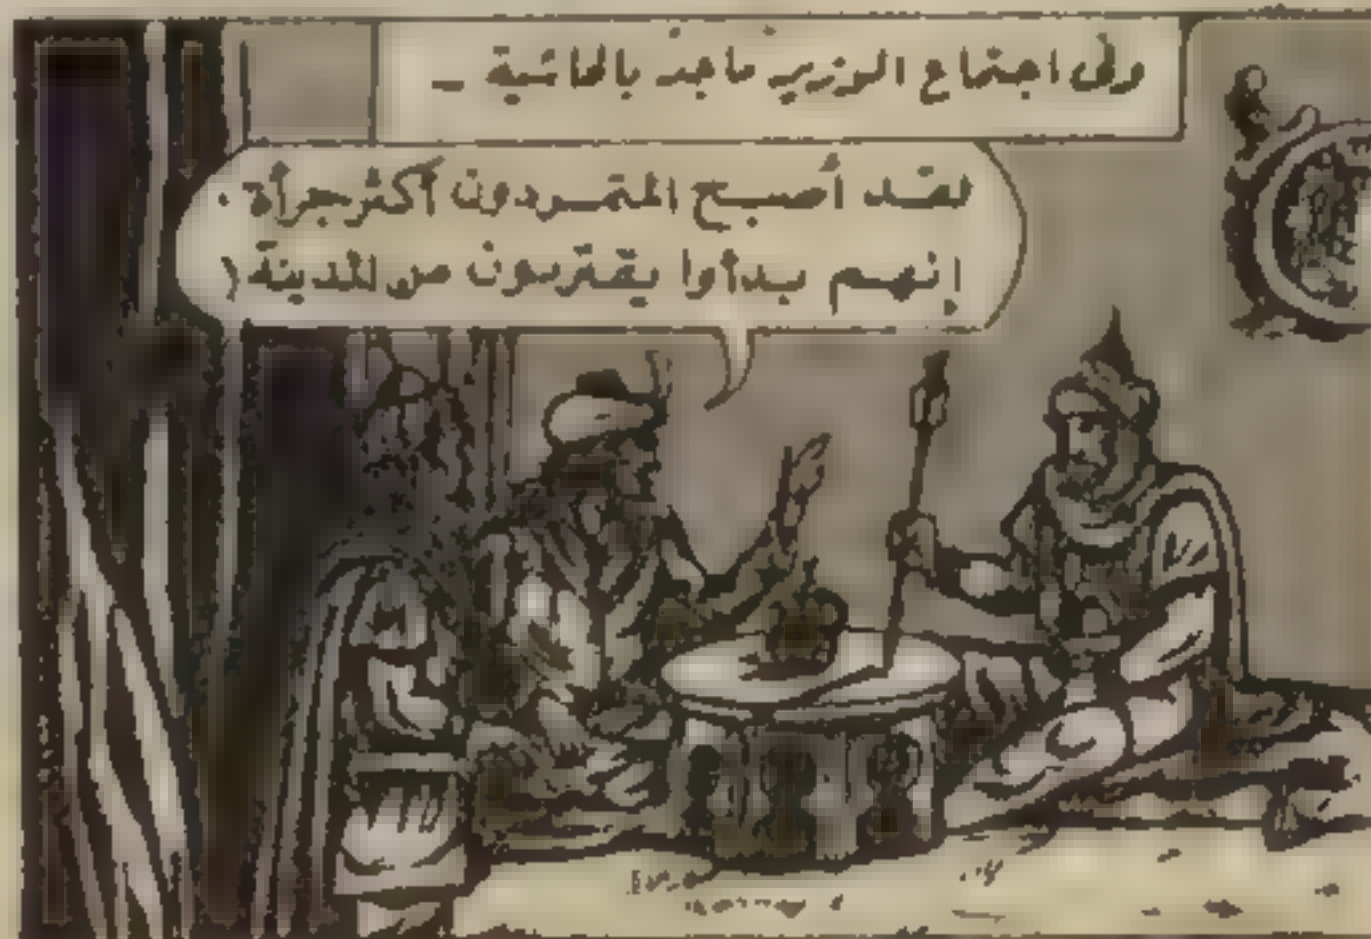 وفى اجتماع الوزير ماجد بالحاشية -
لقد أصبح المتمردون أكثر جرأة .
إنهم بدأوا يقتربون من المدينة !